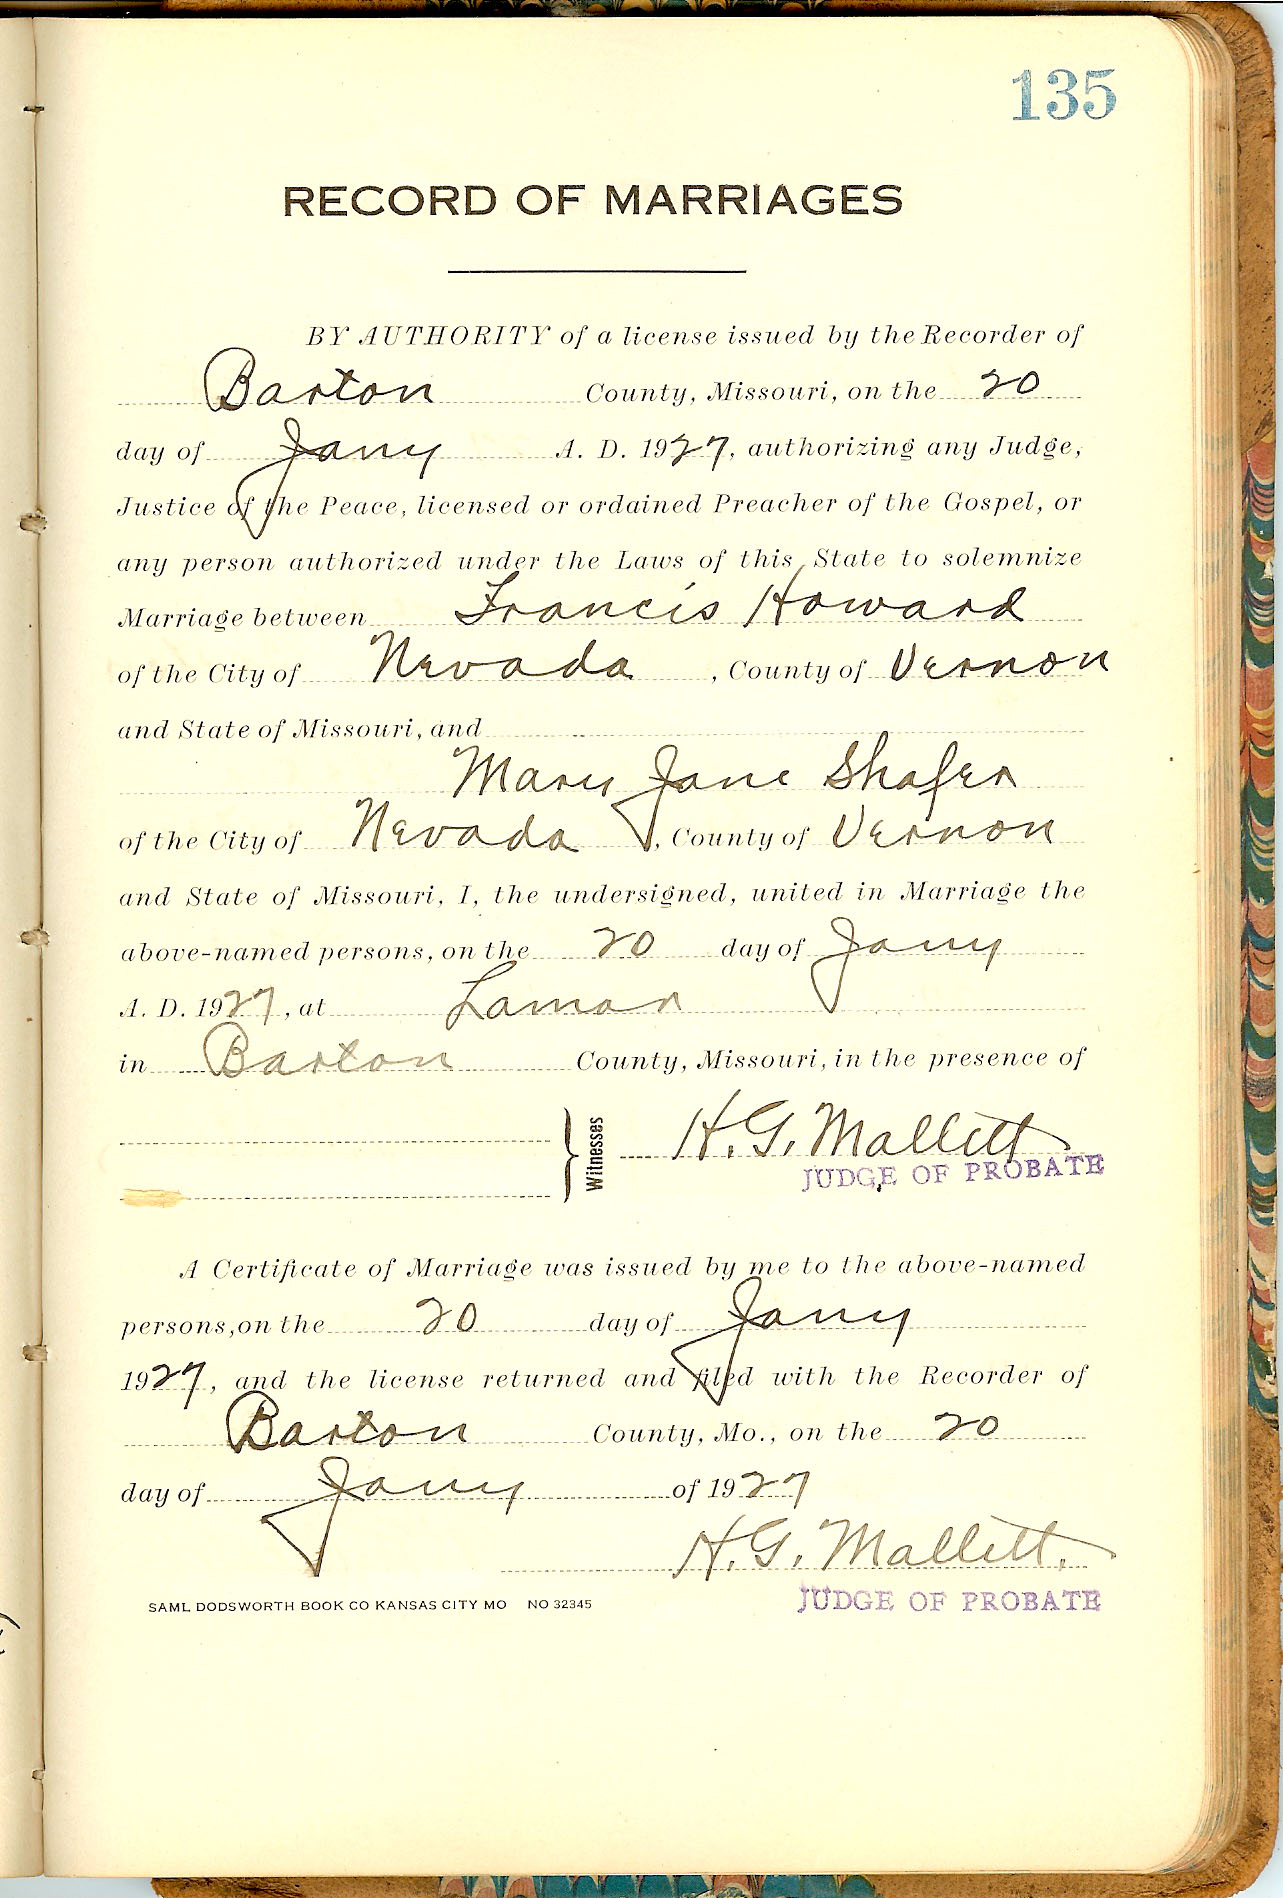 135
RECORD OF MARRIAGES
BY AUTHORITY of a license issued by the Recorder of
Barton County, Missouri, on the 20
day of Jany A. D. 1927, authorizing any Judge,
Justice of the Peace, licensed or ordained Preacher of the Gospel, or
any person authorized under the Laws of this State to solemnize
Marriage between Francis Howard
of the City of Nevada, County of Vernon
and State of Missouri, and
Mary Jane Shafer
of the City of Nevada, County of Vernon
and State of Missouri, I, the undersigned, united in Marriage the
above-named persons, on the 20 day of Jany
A. D. 1927, at Lamar
in Barton County, Missouri, in the presence of
Witnesses H. G. Mallett
JUDGE OF PROBATE
A Certificate of Marriage was issued by me to the above-named
persons, on the 20 day of Jany
1927, and the license returned and filed with the Recorder of
Barton County, Mo., on the 20
day of Jany of 1927
H. G. Mallett.
JUDGE OF PROBATE
SAML DODSWORTH BOOK CO KANSAS CITY MO NO 32345